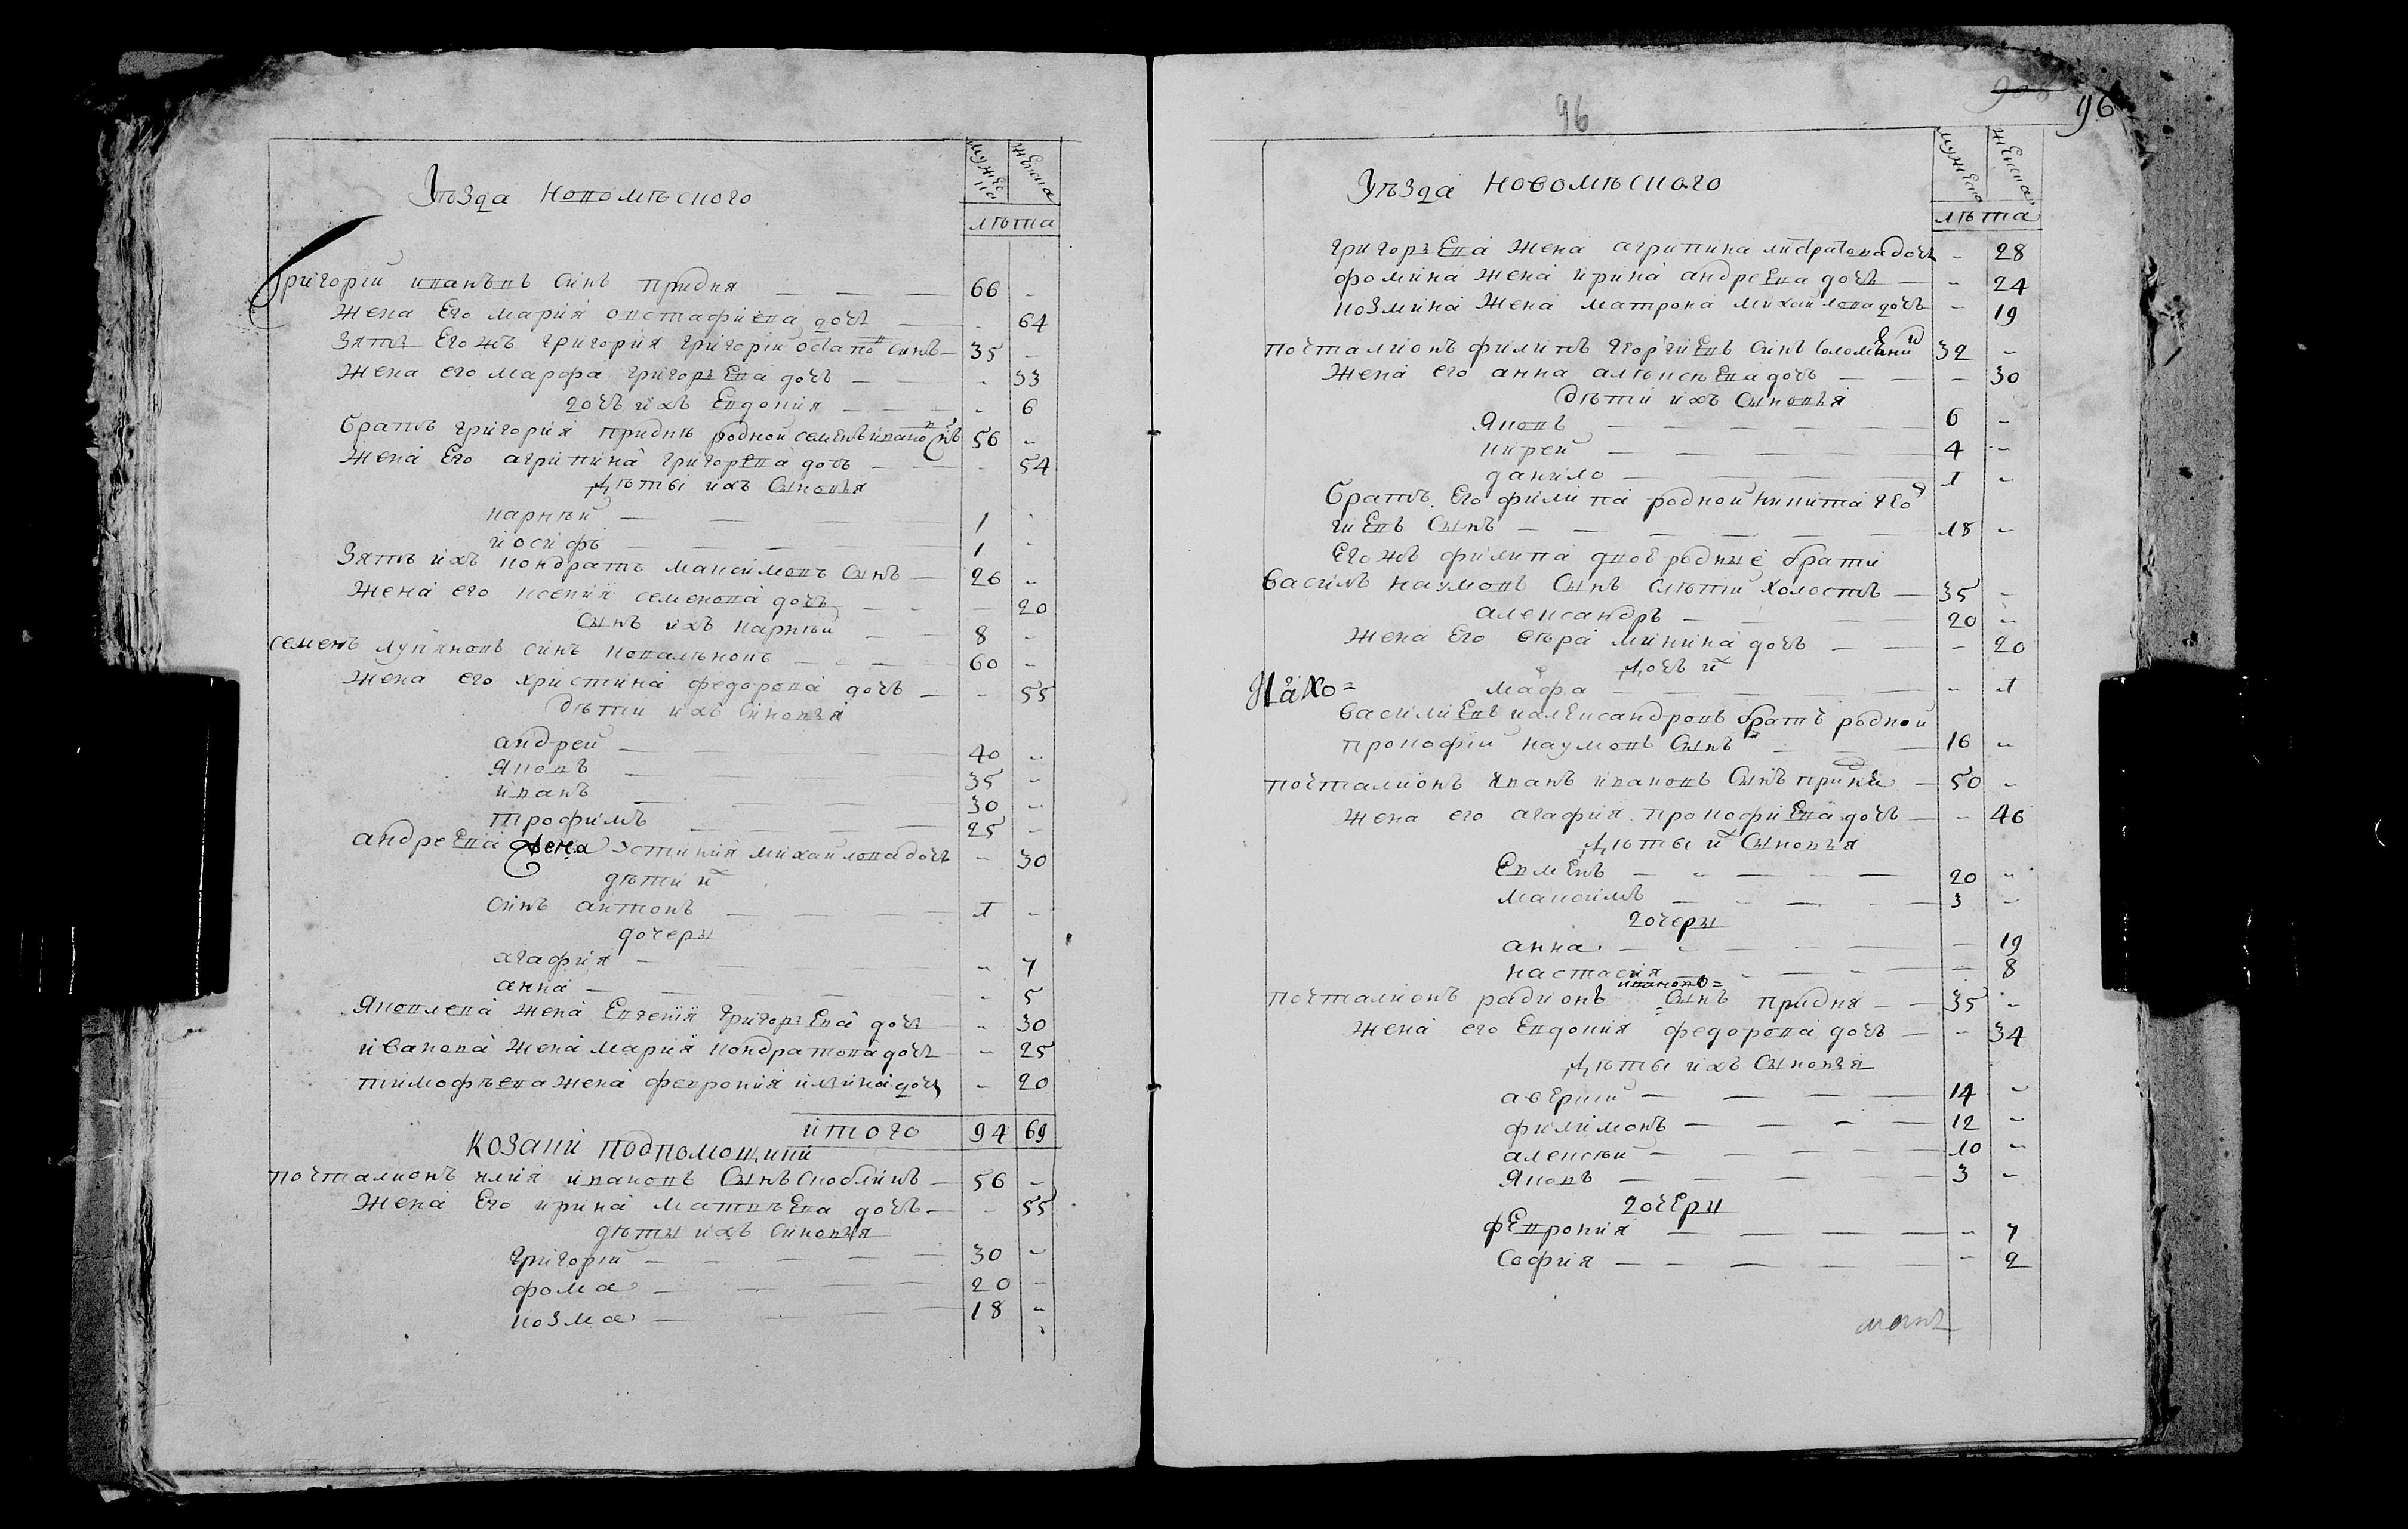 Уѣзда Новомѣского
мужеска
женска
лѣта
Григорий ивановъ синъ придня — 66 -
жена Его мария овстафиева дочъ — - 64
Зять Его жъ григория григорий осипо синъ — 35 -
Жена его марфа григорьева дочъ — - 33
дочъ ихъ Евдокия — - 6
братъ григория придни родной семенъ ивано снъ 56 -
жена Его агрипина григорева дочъ — - 54
Дѣты ихъ Сыновья
карнѣй — 1 -
иосифъ — 1 -
Зять ихъ кондратъ максимовъ Сынъ — 26 -
Жена его ксения семенова дочъ — - 20
Сынъ ихъ карнѣй — 8 -
семенъ лупяновъ синъ — 60 -
Жена его христина федорова дочъ — - 55
дѣти ихъ Синовья
андрей — 40 -
Яковъ — 35 -
иванъ — 30 -
трофимъ — 25 -
андреева жена Устиния михайлова дочъ - 30
дѣти и
синъ антонъ — 1 -
дочеры
агафия — - 7
анна — - 5
Яковлева жена Евгения Григорьева дочъ - 30
иванова жена мария кондратова дочъ - 25
тимофѣева жена феврония илина дочъ - 20
итого 94 69
Козаки подпомощики
почталионъ илия ивановъ Сынъ скоблинъ — 56 -
Жена Его ирина матвѣева дочъ — - 55
дѣты ихъ синовья
григорий — 30 -
фома — 20 -
козма — 18 -
96
96
Уѣзда новомѣского
мужеска
женска
лѣта
григорьева жена агрипина дочъ - 28
фомина жена ирина андреева дочъ — - 24
козмина жена матрона михайлова дочъ - 19
почталионъ филипъ геориевъ синъ 32 -
Жена его анна алѣксѣева дочъ — - 30
Дѣти ихъ Сыновья
Яковъ — 6 -
кирей — 4 -
данило — 1 -
братъ Его филипа родной никита гео
гиевъ Сынъ — 18 -
Его жъ филипа двоеродные брати
василь наумовъ Сынъ слѣпий холостъ — 35 -
александръ — 20 -
жена Его вѣра минина дочъ — - 20
Дочъ и
мафа — - 1
василиевъ и александровъ братъ родной
прокофий наумовъ Сынъ — 16 -
почталионъ иванъ ивановъ Сынъ придня — 50 -
жена его агафия прокофиева дочъ — - 46
Дѣты и Сыновья
Евменъ — 20 -
максимъ — 3 -
дочеры
анна — - 19
настасия — - 8
почталионъ радионъ ивановъ Сынъ придня — 35 -
жена его Евдокия федорова дочъ — - 34
Дѣты ихъ Сыновья
аверкий — 14 -
филимонъ — 12 -
алексѣй — 10 -
Яковъ — 3 -
дочеры
феврония — - 7
София — - 2